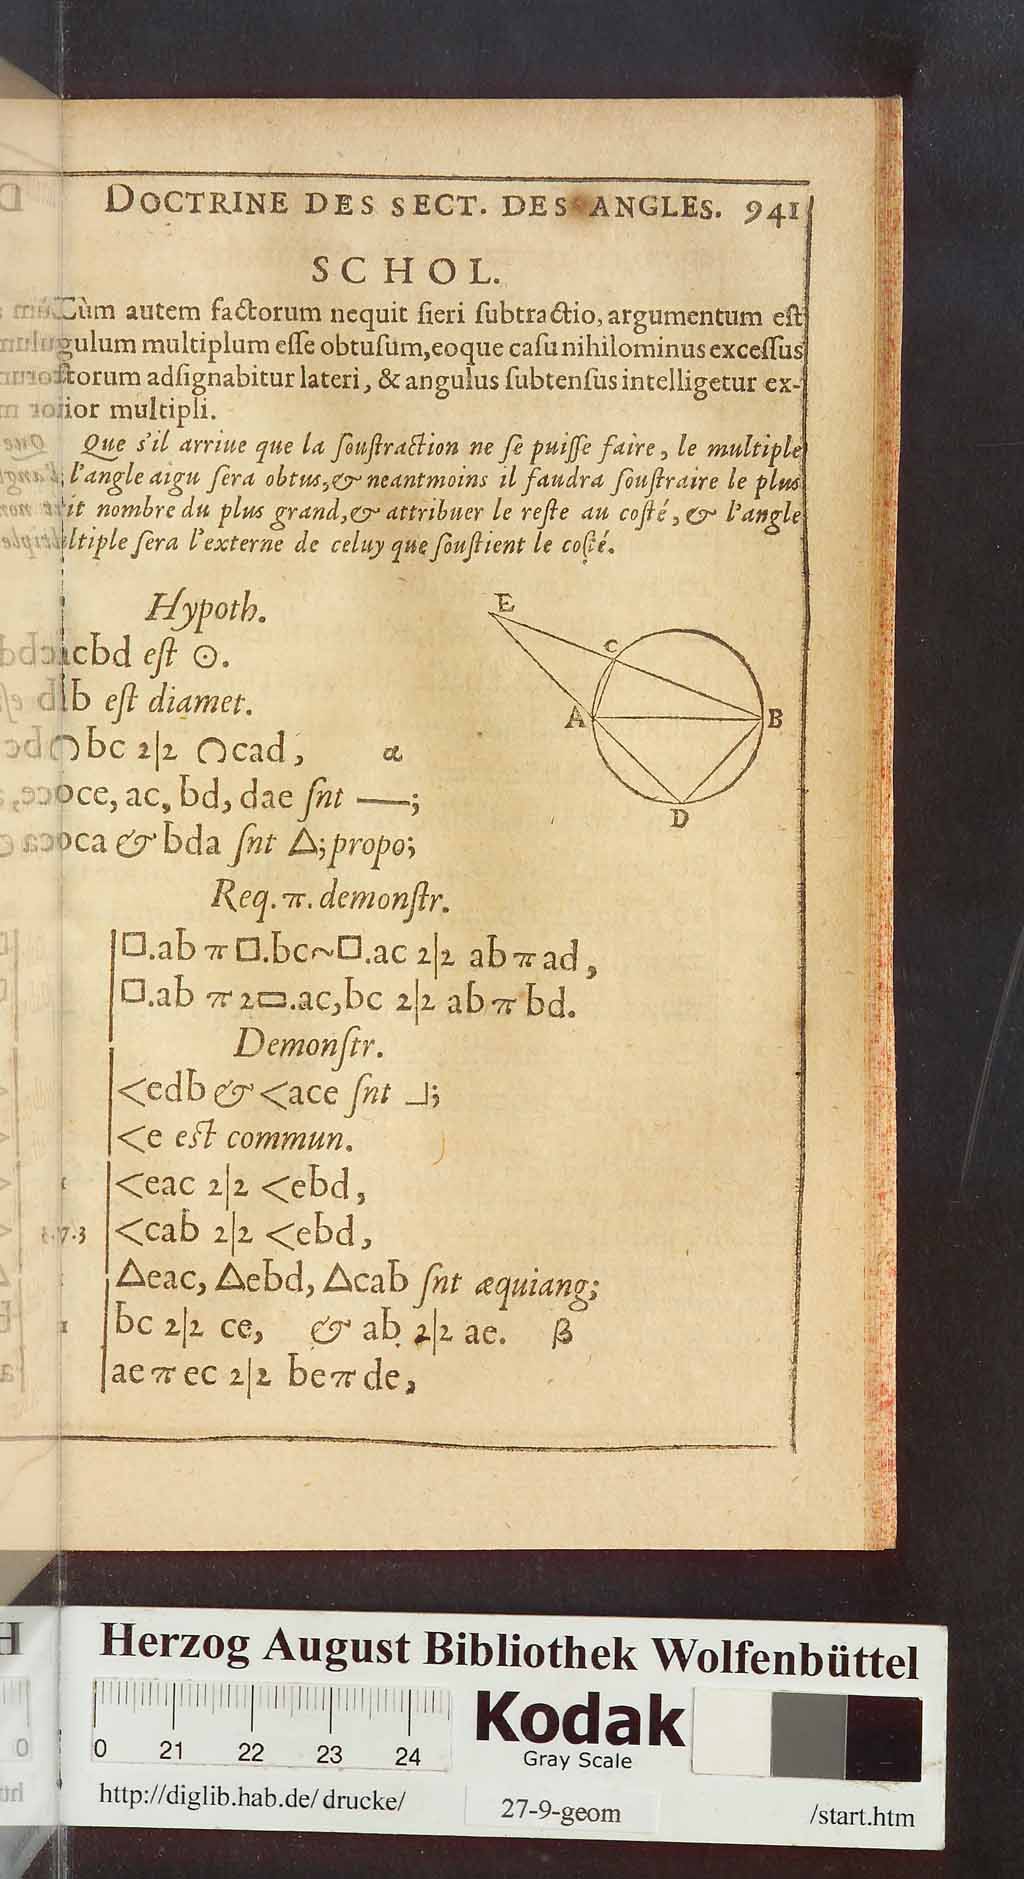 DOCTRINE DES SECT. DES ANGLES. 941
SCHOL.
Cùm autem factorum nequit fieri ſubtractio, argumentum eſt
gulum multiplum eſſe obtuſum, eoque caſu nihilominus exceſſus
ctorum adſignabitur lateri, & angulus ſubtenſus intelligetur ex-
ior multipli.
Que s'il arriue que la ſouſtraction ne ſe puiſſe faire, le multiple
l'angle aigu ſera obtus, & neantmoins il faudra ſouſtraire le plus
it nombre du plus grand, & attribuer le reſte au coſté, & l'angle
ltiple ſera l'externe de celuy que ſouſtient le coſté.
Hypoth.
cbd eſt ⊙.
b eſt diamet.
bc 2|2 ⌒cad, α
ce, ac, bd, dae ſnt —;
ca & bda ſnt △; propo;
E
C
A
B
D
Req. π. demonſtr.
□.ab π □.bc~□.ac 2|2 ab π ad,
□.ab π 2▭.ac,bc 2|2 ab π bd.
Demonſtr.
<edb & <ace ſnt ⅃;
<e eſt commun.
<eac 2|2 <ebd,
<cab 2|2 <ebd,
△eac, △ebd, △cab ſnt æquiang;
bc 2|2 ce, & ab 2|2 ae. β
ae π ec 2|2 be π de,
Herzog August Bibliothek Wolfenbüttel
Kodak
Gray Scale
0 21 22 23 24
http://diglib.hab.de/drucke/ 27-9-geom /start.htm